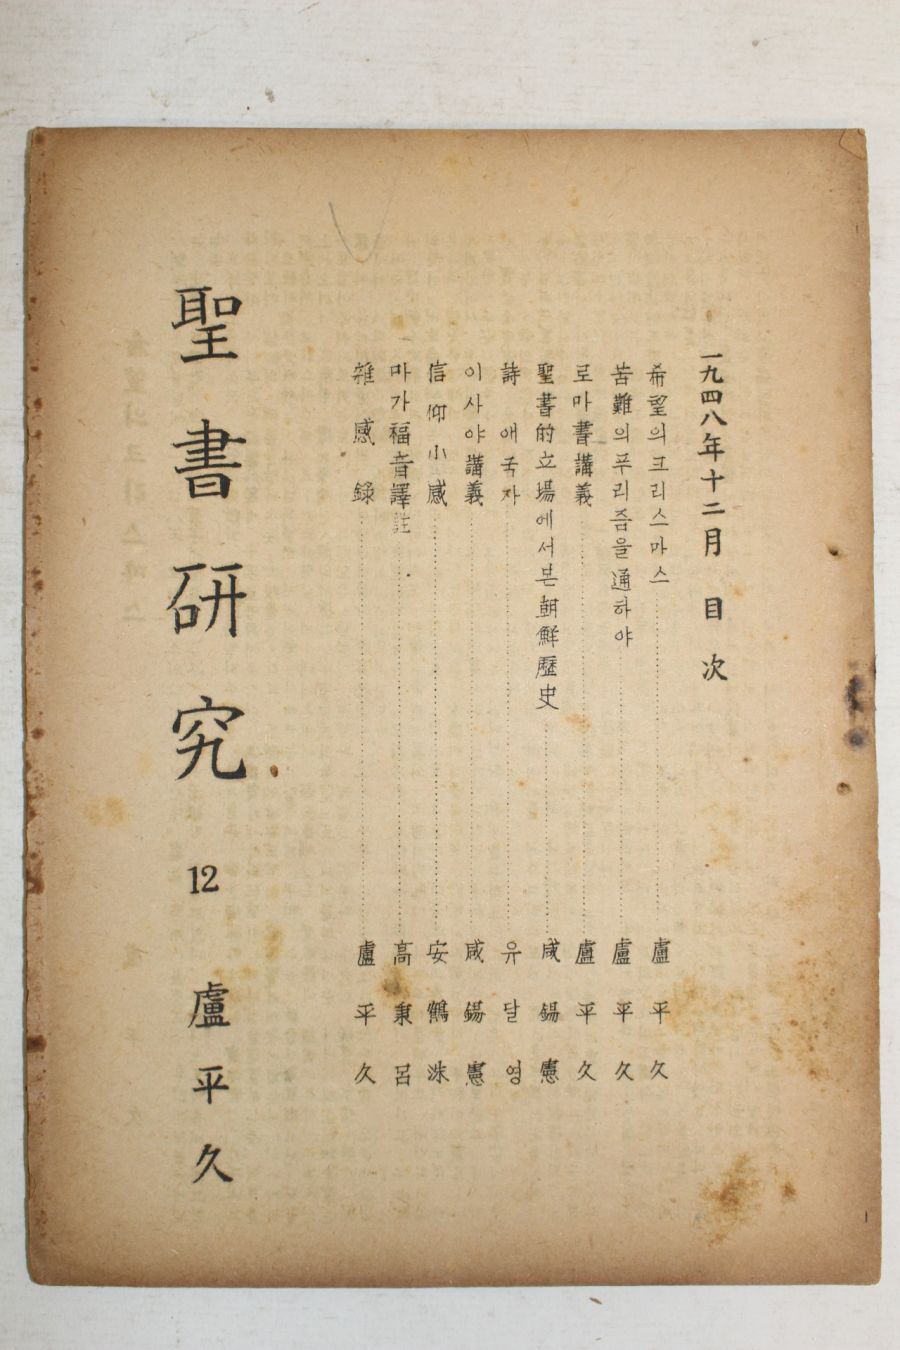 一九四八年十二月 目次
希望의크리스마스……盧平久
苦難의푸리즘을通하야……盧平久
로마書講義……盧平久
聖書的立場에서본朝鮮歷史……咸錫憲
詩 애국자……유달영
이사야講義……咸錫憲
信仰小感……安鶴洙
마가福音譯註……高秉呂
雜感錄……盧平久
聖書研究 12 盧平久